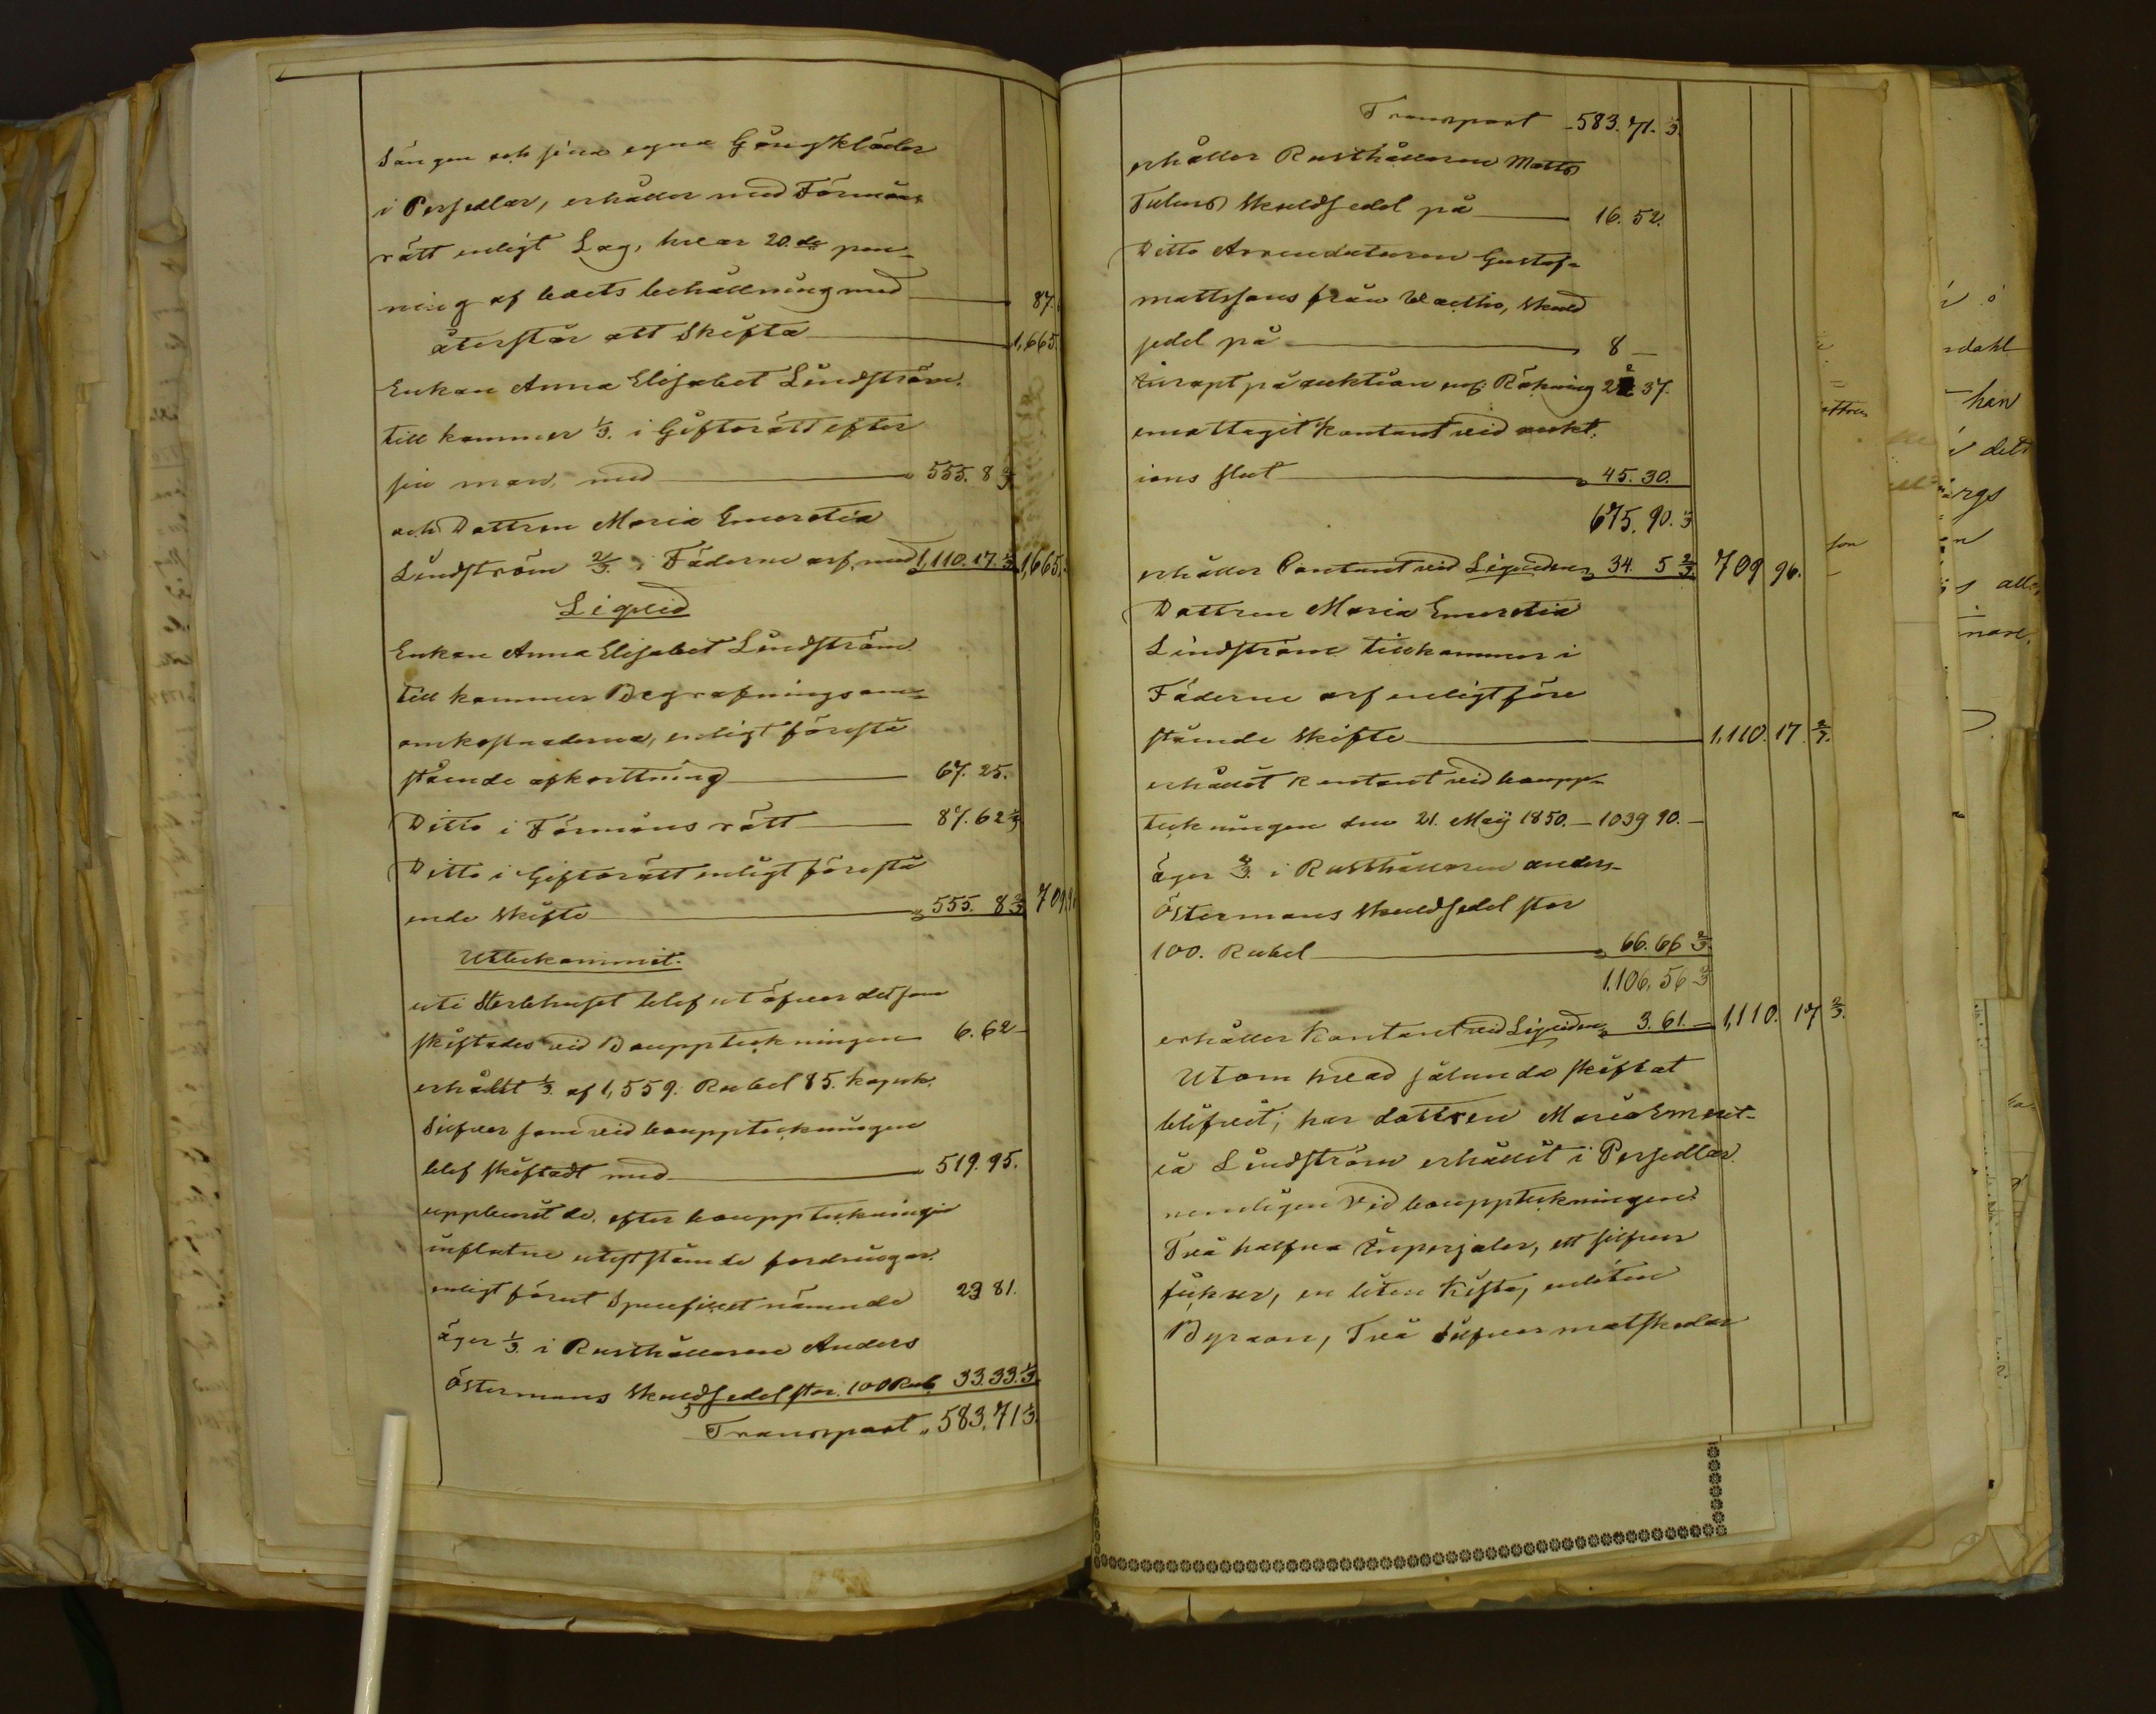 Sängen och sina egna Gångkläder
i Persedlar, erhåller med Förmåns
rätt enligt Lag, hvar 20.de pen-
ning af boets behållning med 87.
återstår att Skifta 1,665.
Enkan Anna Elisabet Lindström
till kommer 1/3. i Giftorätt efter
sin man, med 555. 8 2/3
och Dottren Maria Emerentia
Lindström 2/3. i Fäderne arf, med 1,110. 17. 1,665.
Liqvid
Enkan Anna Elisabet Lindström
till kommer Begrafnings om-
omkostnaderna, enligt förestå
ående afkorttning 67. 25.
Ditto i Förmåns rätt 87. 62
Ditto i Giftorätt enligt förestå
ende skifte 555. 8 2/3 709.9
Utbekommit.
uti Sterbhuset blef ut öfver det som
skiftades vid Bouppteckningen 6. 62
erhållt 1/3. af 1,559. Rubel 85. kopek.
Silfver som vid bouppteckningen
blef skiftadt med 519. 95.
uppburit de, efter bouppteckningen
influtne utestående fordringar
enligt förut Specificet nämnde 23 81.
äger 1/3. i Rusthållaren Anders
Östermans Skuldsedel stor. 100 Rub 33.33.1/3
Transport 583.71 1/3
Transport 583. 71. 1/3.
erhåller Rusthållaren Matts
Skuldsedel på 16. 52.
Ditto Arrendatoren Gustaf-
mattssons från skuld
sedel på 8 —
Inropt på auktion enl. Räkning 22 37.
emottagit kontant vid aukt.
ions slut 45. 30.
675. 90. 1/3
erhåller Contant vid Liqviden 34. 5 2/3 709 96.
Dottren Maria Emerentia
Lindström tillkommer i
Fäderne arf enligt före
stående skifte 1,110. 17. 2/3.
erhållit kontant vid boupp-
teckningen den 21. Maij 1850. 1039 90. —
äger 2/3. i Rusthållaren anders
Östermans skuldsedel stor
100. Rubel 66. 66 2/3
1,106. 56 2/3
erhåller Kontant vid Liqviden 3. 61. — 1,110. 17 2/3.
Utom hvad sålunda skiftat
blifvit, har dottren Maria Emerent-
ia Lindström erhållit i Persedlar
nemligen vid bouppteckningen
Två halfva Imperjaler, ett silfver
en liten Kista, en liten
Byraon, Två Silfver matskedar